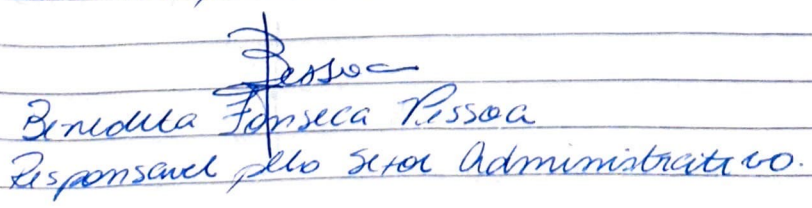 Pessoa
Benedita Fonseca Pessoa
Responsavel pelo Setor Administrativo.